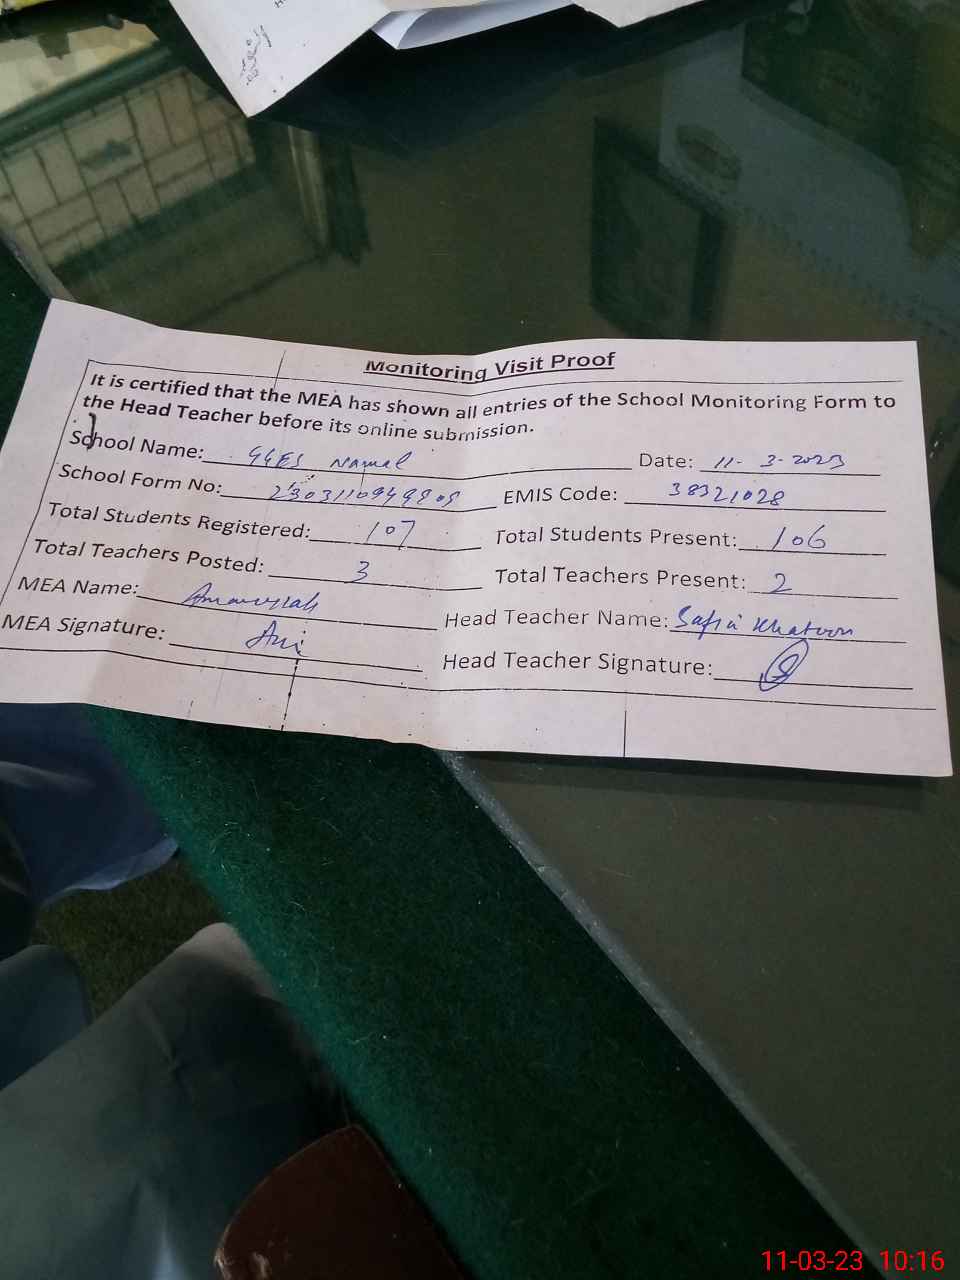 Monitoring Visit Proof
It is certified that the MEA has shown all entries of the School Monitoring Form to
the Head Teacher before its online submission.
School Name: GGES Namal Date: 11-3-2023
School Form No: EMIS Code: 38321028
Total Students Registered: 107 Total Students Present: 106
Total Teachers Posted: 3 Total Teachers Present: 2
MEA Name: Head Teacher Name: Safia Khatoon
MEA Signature: Head Teacher Signature:
11-03-23 10:16